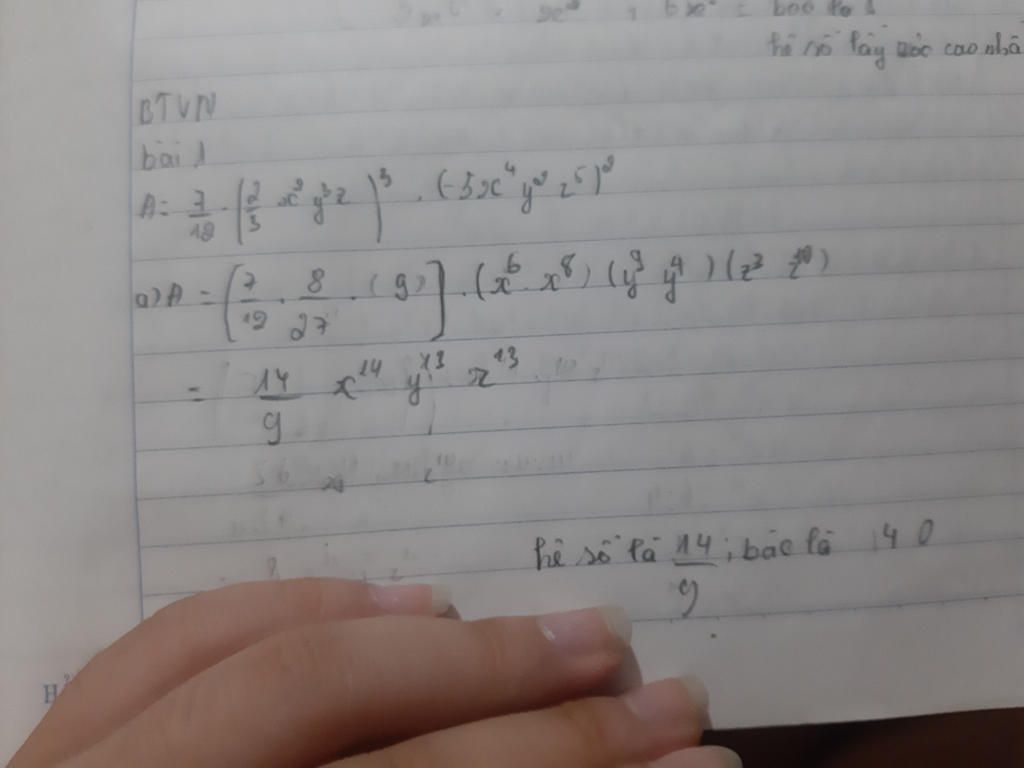 hệ số lấy bậc cao nhấ
BTVN
bài 1
A = 7/12 . (2/3 x² y³ z)³ . (-3x⁴ y² z⁵)²
a) A = [7/12 . 8/27 . (9)] . (x⁶ . x⁸) (y⁹ y⁴) (z³ z¹⁰)
= 14/9 x¹⁴ y¹³ z¹³
hệ số là 14/9 ; bậc là 40